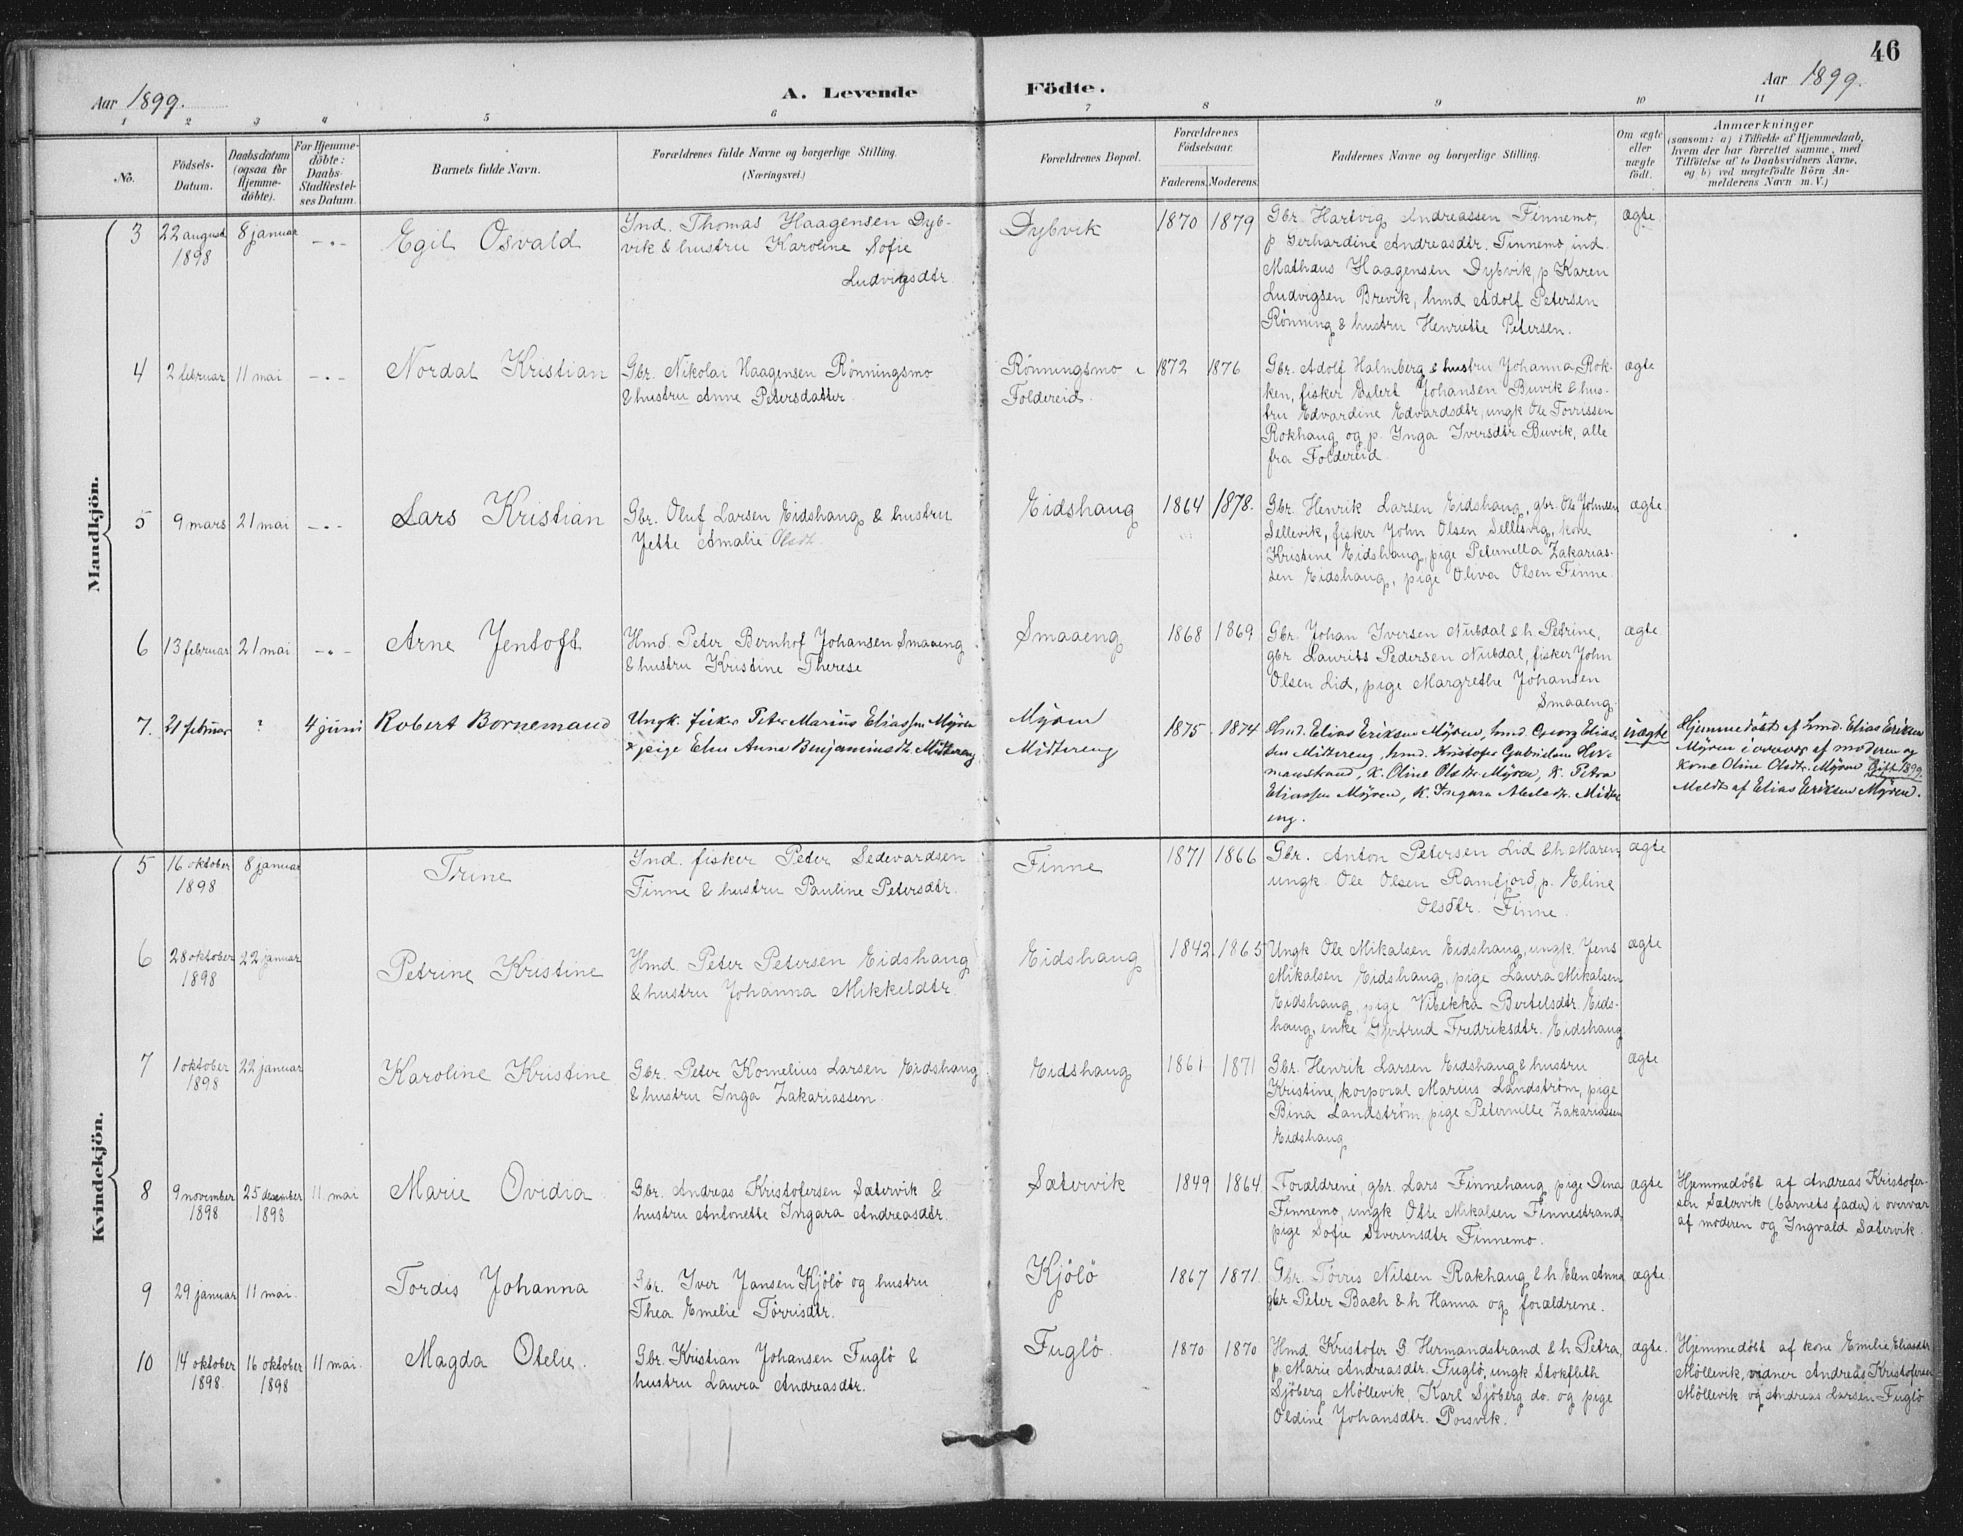 46
Aar 1899.
A. Levende Födte.
Aar 1899.
1 2 3 4 5 6 7 8 9 10 11
No.
Födsels-Datum.
Daabsdatum (ogsaa for Hjemme-döbte).
For Hjemme-döbte: Daabs-Stadfæstel-ses Datum.
Barnets fulde Navn.
Forældrenes fulde Navne og borgerlige Stilling. (Næringsvei.)
Forældrenes Bopæl.
Forældrenes Födselsaar.
Faderens. Moderens.
Faddernes Navne og borgerlige Stilling.
Om ægte eller uægte födt.
Anmærkninger
(saasom: a) i Tilfælde af Hjemmedaab,
hvem der har forrettet samme, med
Tilföielse af to Daabsvidners Navne,
og b) ved uægtefödte Börn An-
melderens Navn m. V.)
Mandkjön.
3 22 august 8 januar -„- Egil Osvald
1898
Ind. Thomas Haagensen Dyb-
vik & hustru Karoline Sofie
Ludvigsdtr.
Dybvik 1870 1879
Gbr. Hartvig Andreassen Finnemo,
p Gerhardine Andreasdtr. Finnemo, ind.
Mathæus Haagensen Dybvik, p Karen
Ludvigsen Brevik, hmd Adolf Petersen
Rönning & hustru Henriette Petersen.
ægte
4 2 februar 11 mai -„- Nordal Kristian
Gbr. Nikolai Haagensen Rönningsmo
& hustru Anne Petersdatter.
Rönningsmo i
Foldereid.
1872 1876
Gbr. Adolf Halmberg & hustru Johanna Rok-
ken, fisker Eilert Johansen Buvik & hus-
tru Edvardine Edvardsdtr, ungk Ole Torrissen
Rokhaug og p. Inga Iversdtr Buvik, alle
fra Foldereid.
ægte
5 9 mars 21 mai -„- Lars Kristian
Gbr. Oluf Larsen Eidshaug & hustru
Jette Amalie Olsdtr.
Eidshaug 1864 1878.
Gbr. Henrik Larsen Eidshaug, gbr. Ole Johnsen
Sellevik, fisker John Olsen Sellesvig, kone
Kristine Eidshaug, pige Peternella Zakarias-
sen Eidshaug, pige Oliva Olsen Finne.
ægte
6 13 februar 21 mai -„- Arne Jentoft
Hmd. Peter Bernhof Johansen Smaaeng
& hustru Kristine Therese
Smaaeng 1868 1869
Gbr. Johan Iversen Nubdal & h. Petrine,
gbr Laurits Pedersen Nubdal, fisker John
Olsen Lid, pige Margrethe Johansen
Smaaeng.
ægte
7. 21 februar ? 4 juni Robert Bornemand
Ungk. fisker Peter Marius Eliassen Myren
& pige Elen Anna Benjaminsdtr. Mittereng
Myren
Mittereng
1875. 1874
Hmd. Elias Eriksen Myren, hmd. Georg Elias-
sen Mittereng, hmd. Kristofer Gabrielsen Her-
manstrand, K. Oline Olsdtr. Myren, K. Petra
Eliassen Myren, K. Ingura Abelsdtr. Mitter-
eng.
uægte
Hjemmedöbt af hmd. Elias Eriksen
Myren i overvær af moderen og
Kone Oline Olsdtr. Myren. Gift 1899.
Meldt af Elias Eriksen Myren.
Kvindekjön.
5 16 oktober 8 januar Trine
1898
Ind. fisker Peter Sedevardsen
Finne & hustru Pauline Petersdtr.
Finne 1871 1866
Gbr. Anton Petersen Lid & h. Maren,
ungk Ole Olsen Ramfjord, p. Eline
Olsdtr. Finne.
ægte
6 28 oktober 22 januar Petrine Kristine
1898
Hmd. Peter Petersen Eidshaug
& hustru Johanna Mikkeldtr.
Eidshaug 1842. 1865
Ungk Ole Mikalsen Eidshaug, ungk. Jens
Mikalsen Eidshaug, pige Laura Mikalsen
Eidshaug, pige Vibekka Bertelsdtr Eids-
haug, enke Gjertrud Fredriksdtr. Eidshaug
ægte
7 1 oktober 22 januar Karoline Kristine
1898
Gbr. Peter Kornelius Larsen Eidshaug
& hustru Inga Zakariassen.
Eidshaug 1861 1871
Gbr. Henrik Larsen Eidshaug & hustru
Kristine, korporal Marius Landström, pige
Bina Landström, pige Peternille Zakariassen
Eidshaug
ægte
8 9 november 25 desember 11 mai Marie Ovidia
1898 1898
Gbr. Andreas Kristofersen Sætervik &
hustru Antonette Ingara Andreasdtr.
Sætervik 1849 1864.
Forældrene, gbr. Lars Finnehaug, pige Dina
Finnemo, ungk Otte Mikalsen Finnestrand,
pige Sofie Severensdtr Finnemo.
ægte
Hjemmedöbt af Andreas Kristofer-
sen Sætervik (barnets fader) i overvær
af moderen og Ingvald Sætervik.
9 29 januar 11 mai. Tordis Johanna
Gbr. Iver Jansen Kjölö og hustru
Thea Emelie Törrisdtr.
Kjölö 1867 1871.
Gbr. Törris Nilsen Rakhaug & h Elen Anna
gbr Peter Bach & h Hanna og forældrene.
ægte.
10 14 oktober 16 oktober 11 mai. Magda Otelie.
1898. 1898
Gbr. Kristian Johansen Fuglö &
hustru Laura Andreasdtr.
Fuglö. 1870 1870
Hmd Kristofer G. Hermandstrand & h Petra,
p. Marie Andreasdtr. Fuglö, ungk Stokfleth
Sjöberg Möllevik, Karl Sjöberg do. og pige
Oldine Johansdtr. Porsvik.
ægte.
Hjemmedöbt af kone Emilie Eliasdtr
Möllevik, vidner Andreas Kristofersen
Möllevik og Andreas Larsen Fuglö